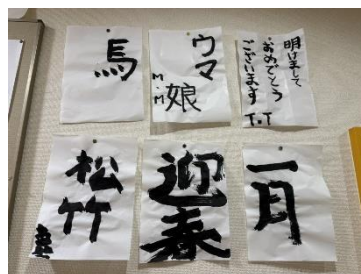 馬
ウマ
娘
M.M
明けまして
おめでとう
ございます
T.T
松
竹
迎
春
一
月